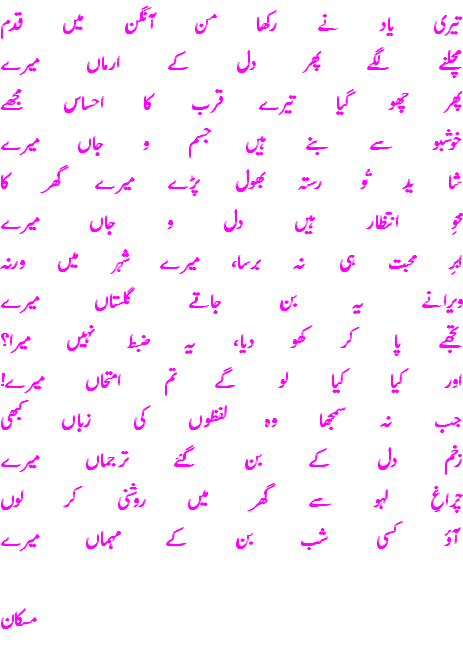 تیری یاد نے رکھا من آنگن میں قدم
مچلنے لگے پھر دل کے ارماں میرے
پھر چھو گیا تیرے قرب کا احساس مجھے
خوشبو سے بنے ہیں جسم و جاں میرے
شا ید تُو رستہ بھول پڑے میرے گھر کا
محوِ انتظار ہیں دل و جاں میرے
ابرِ محبت ہی نہ برسا، میرے شہر میں ورنہ
ویرانے یہ بن جاتے گلستاں میرے
تجھے پا کر کھو دیا، یہ ضبط نہیں میرا؟
اور کیا کیا لو گے تم امتحاں میرے!
جب نہ سمجھا وہ لفظوں کی زباں کبھی
زخم دل کے بن گئے ترجماں میرے
چراغِ لہو سے گھر میں روشنی کر لوں
آؤ کسی شب بن کے مہماں میرے
مسکان